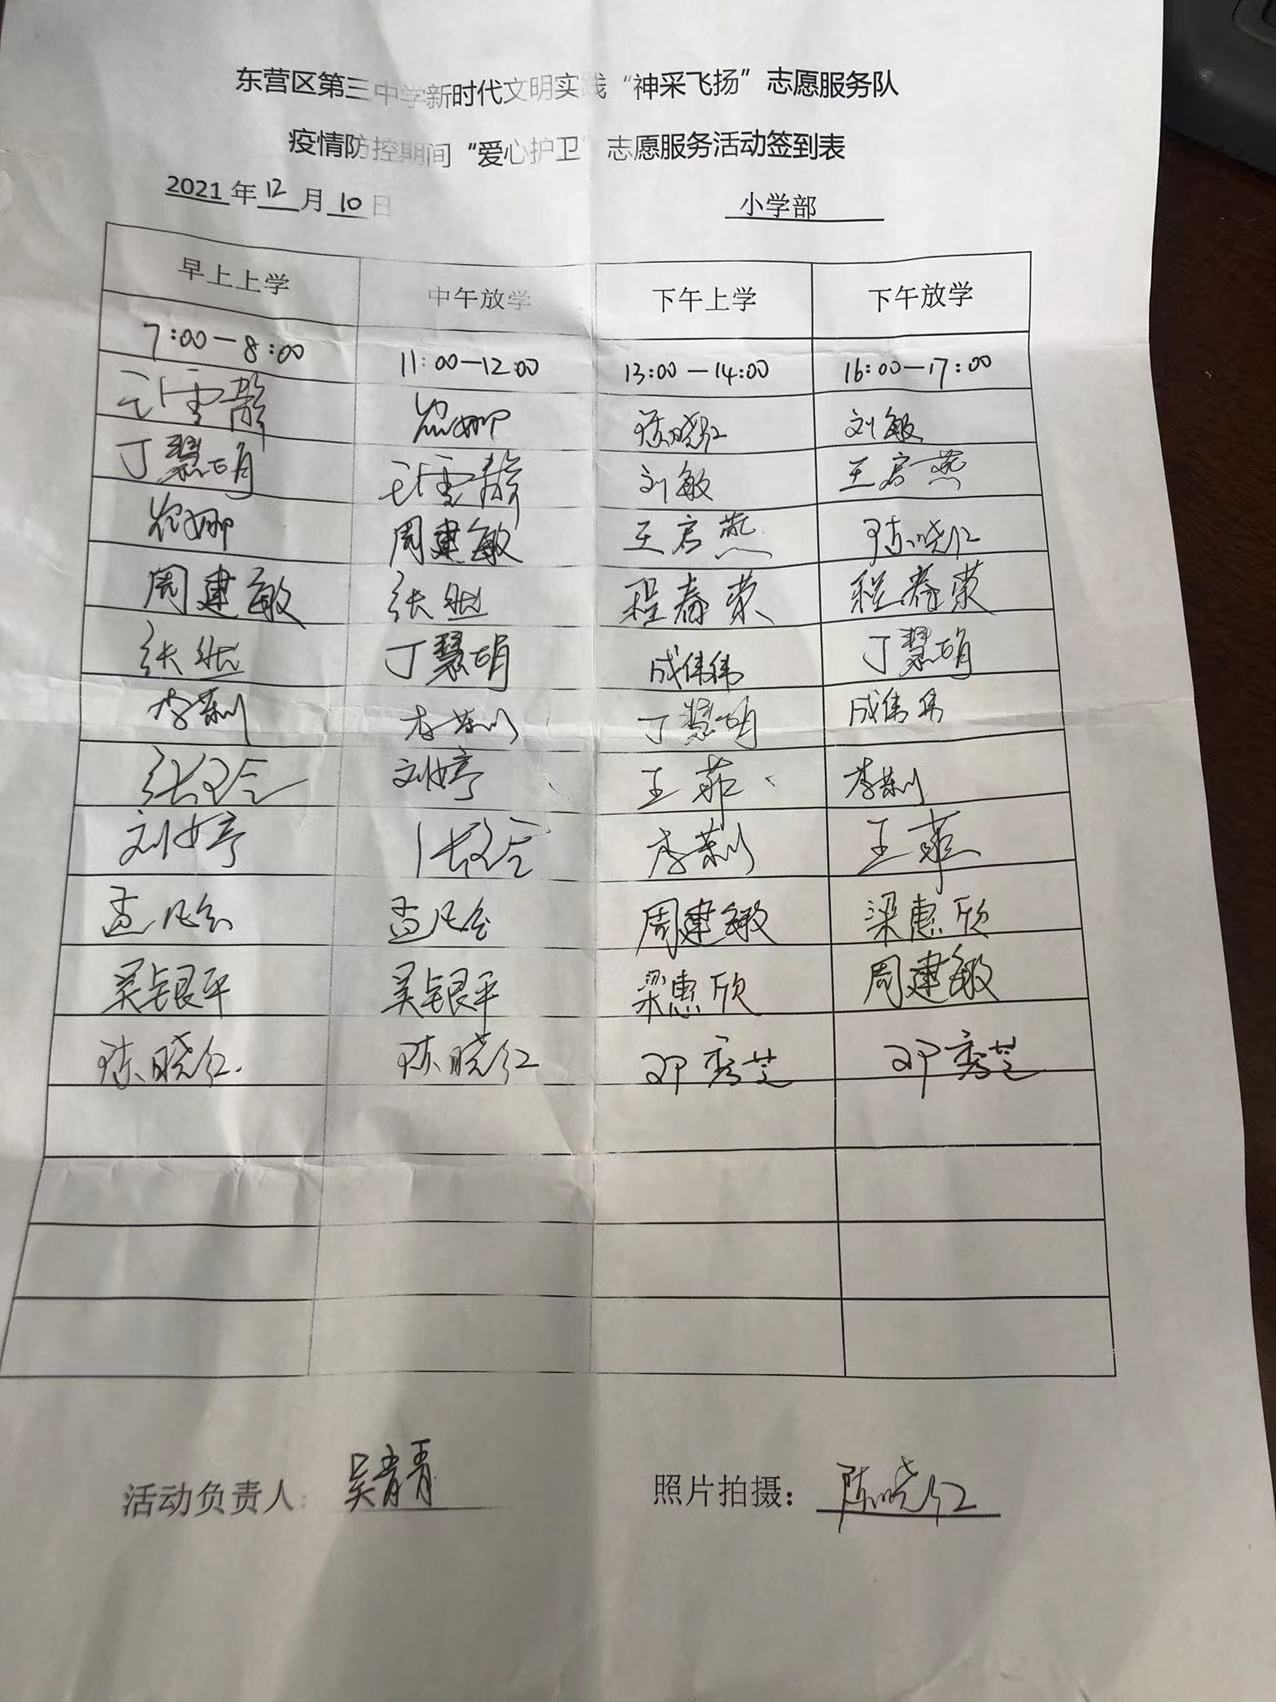 东营区第三中学新时代文明实践“神采飞扬”志愿服务队
疫情防控期间“爱心护卫”志愿服务活动签到表
2021年12月10日 小学部
早上上学 中午放学 下午上学 下午放学
7:00-8:00 11:00-12:00 13:00-14:00 16:00-17:00
陈晓红 刘敏
丁慧娟 刘敏 王启燕
周建敏 王启燕 陈晓红
周建敏 程春荣 程春荣
丁慧娟 成伟伟 丁慧娟
李荣利 李荣利 丁慧娟 成伟伟
刘婷 王菲 李荣利
刘婷 李荣利 王菲
孟凡会 孟凡会 周建敏 梁惠欣
吴银平 吴银平 梁惠欣 周建敏
陈晓红 陈晓红 邓秀芝 邓秀芝
活动负责人:吴青青 照片拍摄:陈晓红